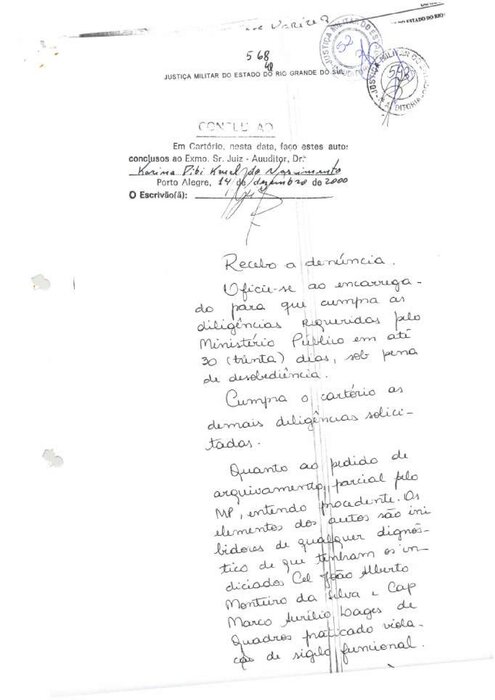 568
JUSTIÇA MILITAR DO ESTADO DO RIO GRANDE DO SUL
CONCLUSÃO
Em Cartório, nesta data, faço estes autos
conclusos ao Exmo. Sr. Juiz - Auuditor, Dr.
Karina Dibi Kruel do Nascimento
Porto Alegre, 14 de dezembro de 2000
O Escrivão(ã):
Recebo a denúncia.
Oficie-se ao encarrega-
do para que cumpra as
diligências requeridas pelo
Ministério Público em até
30 (trinta) dias, sob pena
de desobediência.
Cumpra o cartório as
demais diligências solici-
tadas.
Quanto ao pedido de
arquivamento, parcial pelo
MP, entendo procedente. Os
elementos dos autos são ini
bidores de qualquer dignós-
tico de que tenham os in-
diciados Cel João Alberto
Monteiro da Silva e Cap
Marco Aurélio Lages de
Quadros praticado viola-
ção de sigilo funcional.